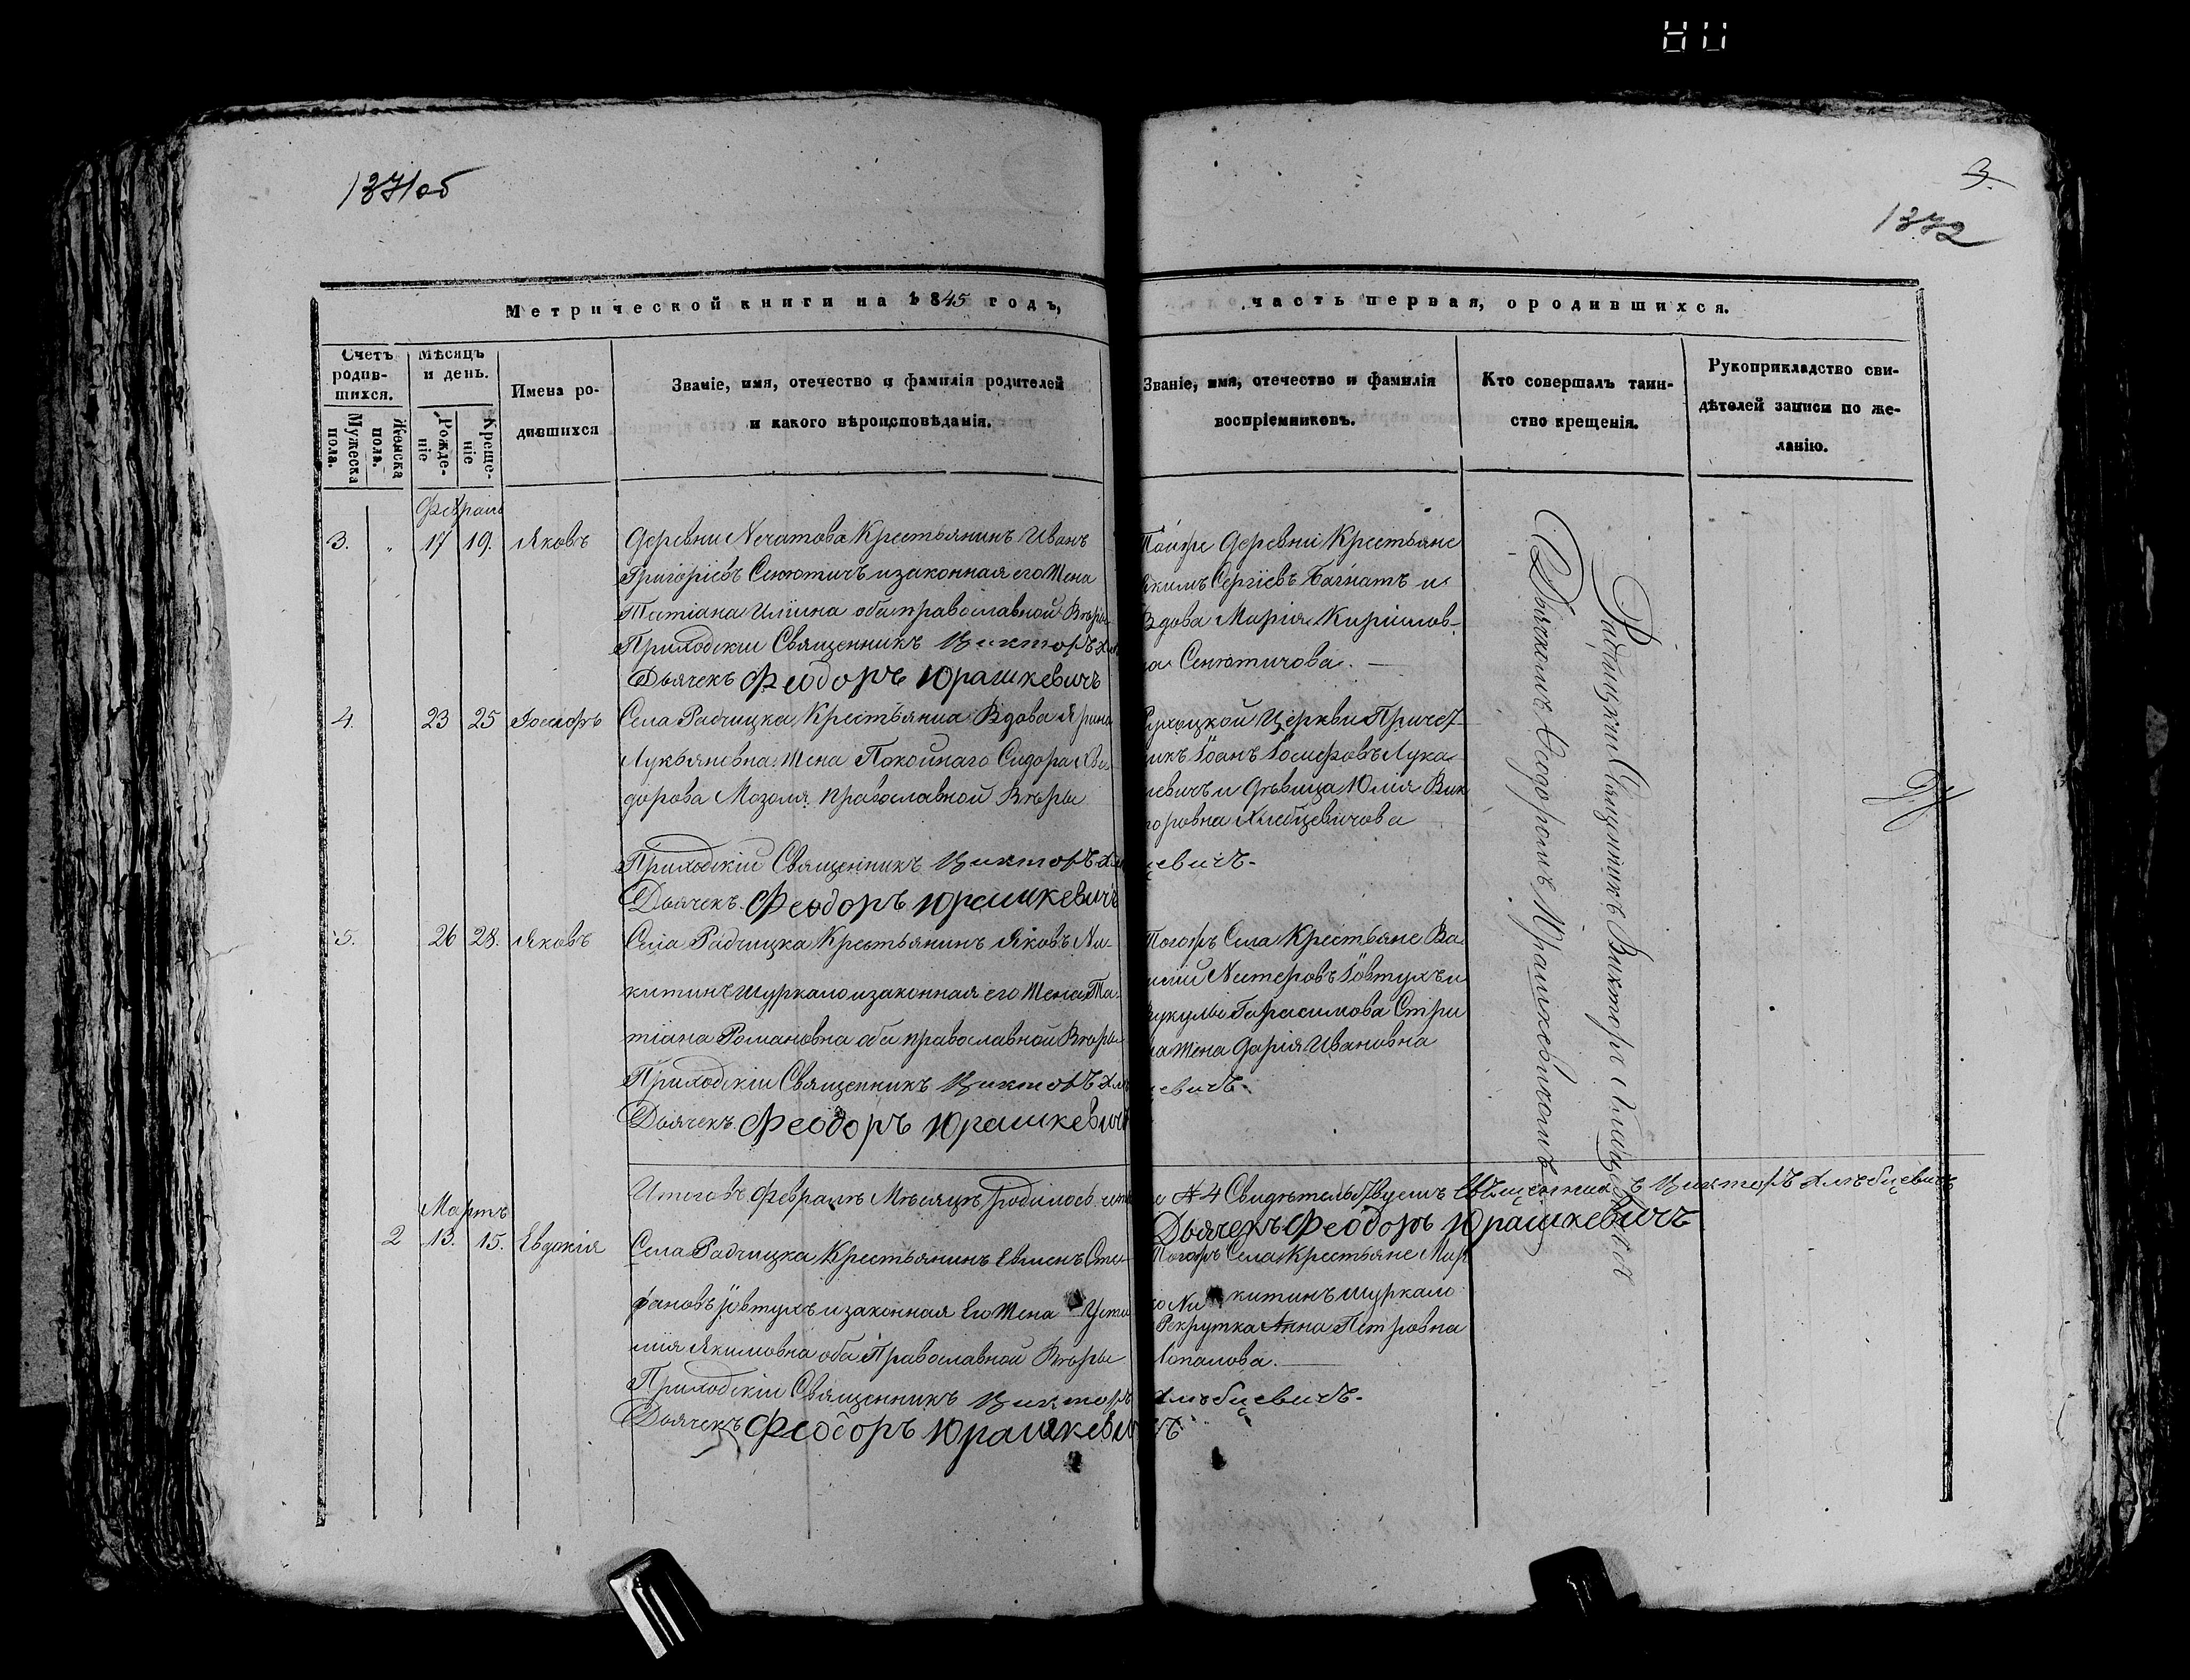 1371об
3.
1372
Метрической книги на 1845 годъ,
часть первая, о родившихся.
Счетъ родив-шихся.
Мужеска пола.
Женска пола.
Мѣсяцъ и день.
Рожде-ніе
Креще-ніе
Имена ро-дившихся
Званіе, имя, отечество и фамилія родителей
и какого вѣроисповѣданія.
Званіе, имя, отечество и фамилія
воспріемниковъ.
Кто совершалъ таин-
ство крещенія.
Рукоприкладство сви-
дѣтелей записи по же-
ланію.
3. " 17 19. Яковъ
Деревни Нечатова Крестьянинъ Иванъ
Григоріевъ Сенютичъ и законная его Жена
Татіана оба православной Вѣры
Приходскіи Священникъ Викторъ
Дьячекъ Феодоръ Юрашкевичъ
Тойже Деревни Крестьяне
Сергіевъ Багнатъ и
Вдова Марія Кирилов-
на Сенютичова.
4. 23 25 Іосифъ
Села Радчицка Крестьянка Вдова
Лукьяновна Жена Покойнаго Сидора
дорова Мозоля православной Вѣры
Приходскіи Священникъ Викторъ
Дьячекъ Феодоръ Юрашкевичъ
Церкви Причет-
никъ Іоанъ Іосифовъ Лука-
шевичъ и Дѣвица Юлія Вик
торовна Хлебцевичова
цевичъ.
5. 26 28. Яковъ
Села Радчицка Крестьянинъ Яковъ Ни-
китинъ Шуркало и законная его Жена Та-
тіана Романовна оба православной Вѣры
Приходскіи Священникъ Викторъ
Дьячекъ Феодоръ Юрашкевичъ
Тогожъ Села Крестьяне Ва
силій Нестеровъ Іовтухъ и
Герасимова Стри
на Жена Дарія Ивановна
цевичъ.
Итого въ Февралѣ Мѣсяцѣ родилось
№ 4 Священникъ Викторъ Хлѣбцевичъ
Дьячекъ Феодоръ Юрашкевичъ
Мартъ
2 13. 15. Евдокія
Села Радчицка Крестьянинъ Сте-
фановъ Іовтухъ и законная Его Жена Усти
Якимовна оба Православной Вѣры
Приходскіи Священникъ Викторъ
Дьячекъ Феодоръ Юрашкевичъ
Тогожъ Села Крестьяне Мар
ко Ни китинъ Шуркало
Рекрутка Анна Петровна
Хлѣбцевичъ.
Радчицкій Священникъ Викторъ
Дьячкомъ Феодоромъ Юрашкевичомъ